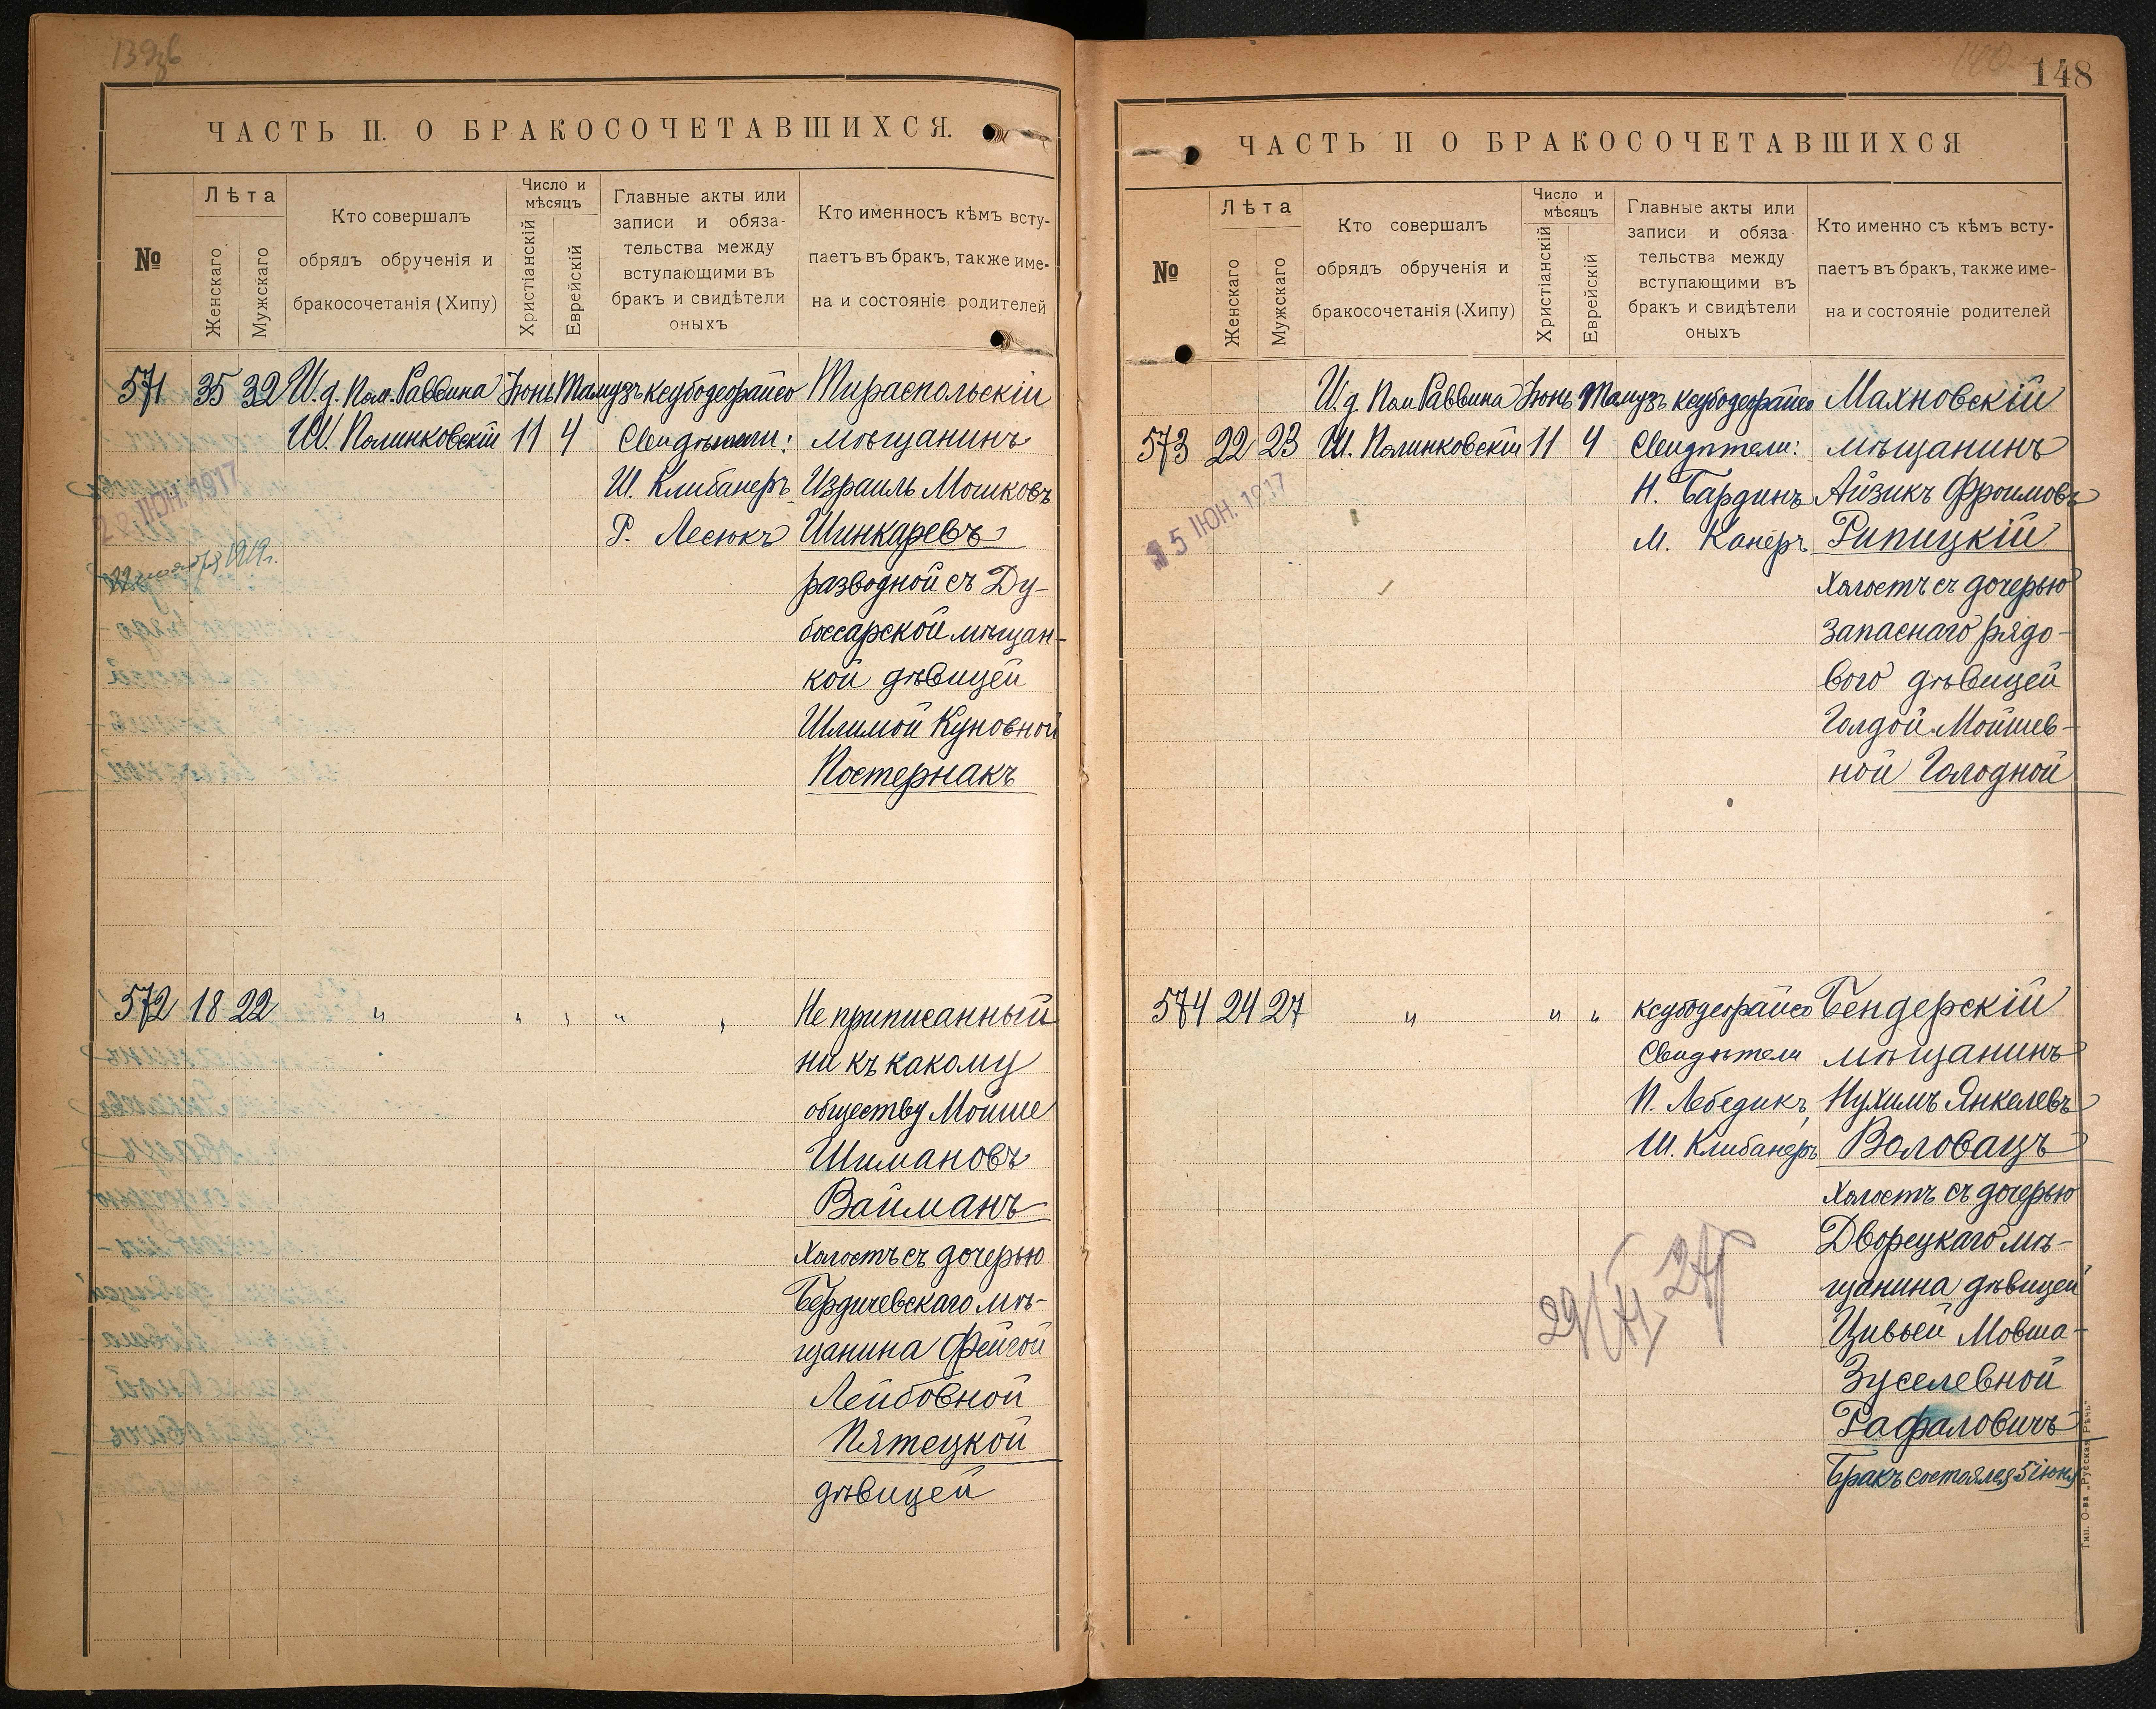 148
ЧАСТЬ II. О БРАКОСОЧЕТАВШИХСЯ.
№
Лѣта
Женскаго
Мужскаго
Кто совершалъ
обрядъ обрученія и
бракосочетанія (Хипу)
Число и
мѣсяцъ
Христіанскій
Еврейскій
Главные акты или
записи и обяза-
тельства между
вступающими въ
бракъ и свидѣтели
оныхъ
Кто именносъ кѣмъ всту-
паетъ въ бракъ, также име-
на и состояніе родителей
571 35 32 И.д. Пом. Раввина Іюнь Тамузъ ксубодеорайсо Тираспольскій
Ш. Полинковскій 11 4 Свидѣтели: мѣщанинъ
Ш. Клибанеръ Израиль Мошковъ
28 ІЮН. 1917
Р. Лесюкъ Шинкаревъ
1919г.
разводной съ Ду-
боссарской мѣщан-
кой дѣвицей
Шлимой Куновной
Постернакъ
572 18 22 " " " " " Не приписанный
ни къ какому
обществу Мойше
Шимановъ
Вайманъ
Холостъ съ дочерью
Бердичевскаго мѣ-
щанина Фейгой
Лейбовной
Пятецкой
дѣвицей
ЧАСТЬ II О БРАКОСОЧЕТАВШИХСЯ
№
Лѣта
Женскаго
Мужскаго
Кто совершалъ
обрядъ обрученія и
бракосочетанія (Хипу)
Число и
мѣсяцъ
Христіанскій
Еврейскій
Главные акты или
записи и обяза
тельства между
вступающими въ
бракъ и свидѣтели
оныхъ
Кто именно съ кѣмъ всту-
паетъ въ бракъ, также име-
на и состояніе родителей
И.д. Пом Раввина Іюнь Тамузъ ксубодеорайсо Махновскій
573 22 23 Ш. Полинковскій 11 4 Свидѣтели: мѣщанинъ
Н. Бардинъ Айзикъ Фроимовъ
15 ІЮН. 1917
М. Канеръ Рипицкій
Холостъ съ дочерью
запаснаго рядо-
вого дѣвицей
Голдой Мойшев-
ной Голодной
574 24 27 " " " ксубодеорайсо Бендерскій
Свидѣтели мѣщанинъ
П. Лебедикъ Нухимъ Янкелевъ
Ш. Клибанеръ Воловацъ
Холостъ съ дочерью
Дворецкаго мѣ-
щанина дѣвицей
Цивьей Мовша-
Зуселевной
Рафаловичъ
Бракъ состоялся 5 іюня
Тип. О-ва „Русская Рѣчь"